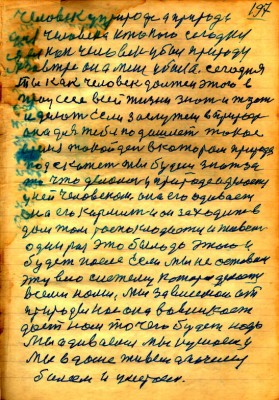 197
человек у природе а природа
человека кто кого сегодня
как человек убил природу
завтра она меня убила. сегодня
ты как человек должен этого в
процессе всей жизни знать и ждать
и делать если заслужит в природе
она для тебя подошлет такое
такой дей в котором природа
подскажет ты будеш знать за
то что делают у природе а делают
у ней человеком, она его одевает
она его кармит и он заходит в
дом там господствоати и живет
один раз это было до этого и
будет после если мы не остановим
эту всю систему которая делают
всеми нами, мы зависимои от
природы как она
даст нам то чего будет надо
мы одиваемся мы кушаем
мы в доме живем а почему
болеем и умераем.